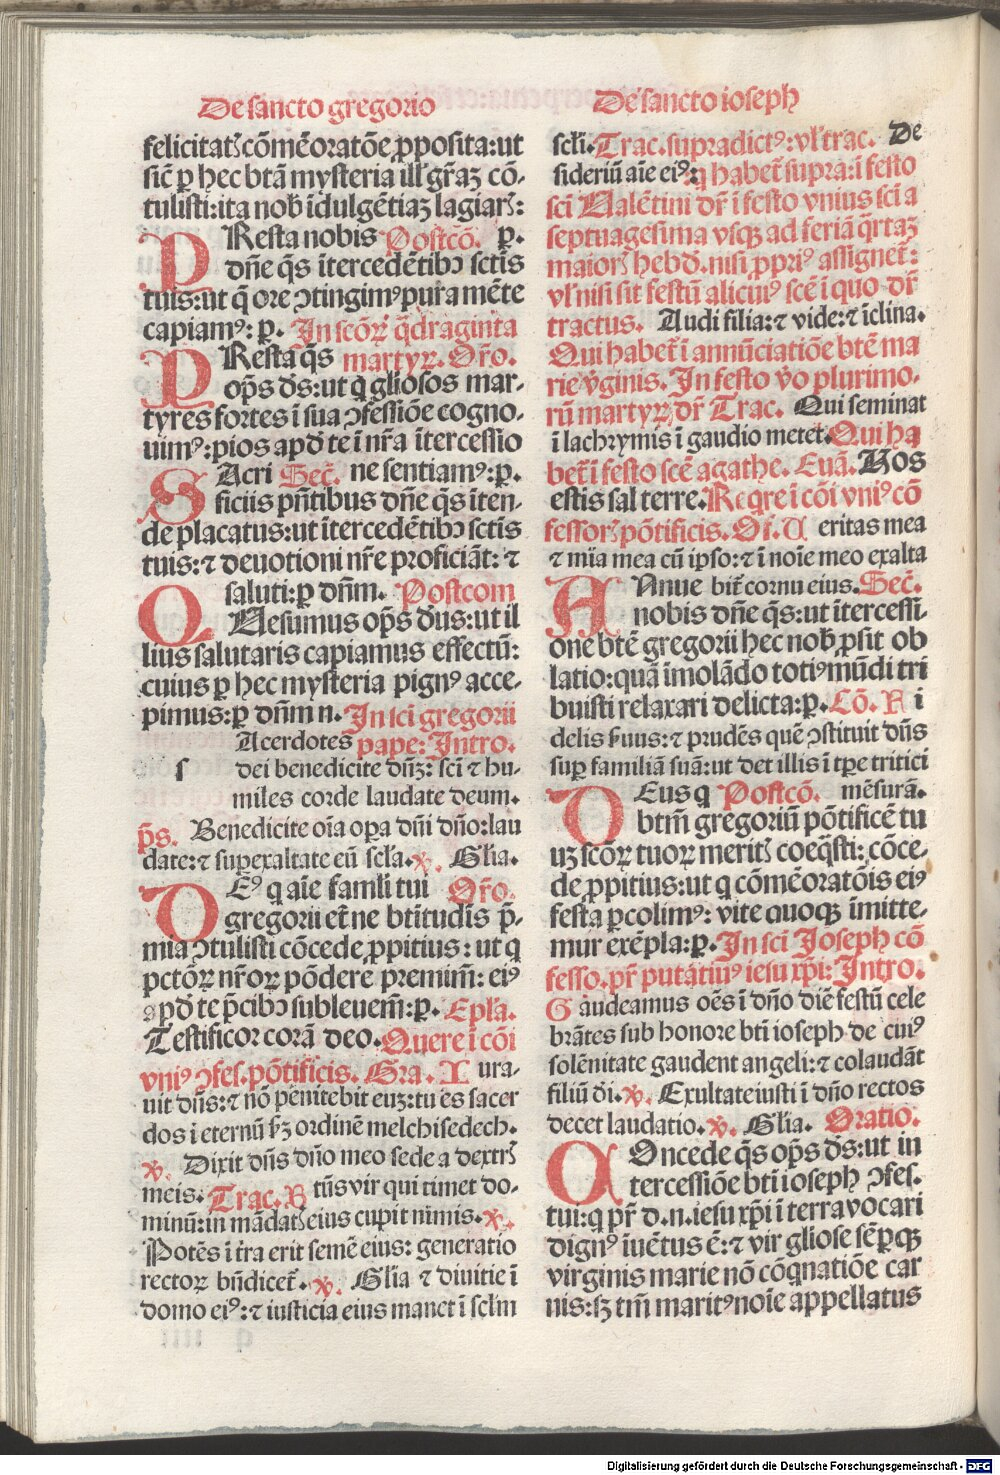 De sancto gregorio
felicitatꝭ cōmēoratōe ꝓposita: ut
sic̄ ꝑ hec btā mysteria illꝭ gr̄aꝫ cō-
tulisti: ita nob̄ īdulgētiaꝫ lagiarꝭ:
PResta nobis Postcō. ꝑ.
dn̄e q̄s ītercedētibꝰ sctīs
tuis: ut q̄ ore ꝯtingimꝰ pura mēte
capiamꝰ: ꝑ. In scōꝝ q̄draginta
PResta q̄s martyꝝ. Or̄o.
op̄s d̄s: ut q̄ gliosos mar-
tyres fortes ī sua ꝯfessiōe cogno-
uimꝰ: pios apd̄ te ī nr̄a ītercessio
SAcri Sec̄. ne sentiamꝰ: ꝑ.
ficiis pn̄tibus dn̄e q̄s īten-
de placatus: ut ītercedētibꝰ sctīs
tuis: ⁊ deuotioni nr̄e proficiāt: ⁊
saluti: ꝑ dn̄m. Postcom
QVesumus op̄s d̄us: ut il
lius salutaris capiamus effectū:
cuius ꝑ hec mysteria pignꝰ acce-
pimus: ꝑ dn̄m n. In sci gregorii
Acerdotes pape: Intro.
s dei benedicite dn̄ꝫ: sci ⁊ hu-
miles corde laudate deum.
p̄s. Benedicite oīa oꝑa dn̄i dn̄o: lau
date: ⁊ suꝑexaltate eū scl̄a. ℣. Gl̄ia.
DEꝰ q aīe famli tui Or̄o.
gregorii et̄ne btītudīs p̄-
mia ꝯtulisti cōcede ꝓpitius: ut q
pctōꝝ nr̄oꝝ pōdere premim̄: eiꝰ
apd̄ te p̄cibꝰ subleuem̄: ꝑ. Epl̄a.
Testificor corā deo. Quere ī cōi
vniꝰ ꝯfes. pōtificis. Gra. I ura-
uit dn̄s: ⁊ nō penitebit euꝫ: tu es sacer
dos ī eternū ẜꝫ ordinē melchisedech.
℣. Dixit dn̄s dn̄o meo sede a dextrꝭ
meis. Trac. B tūs vir qui timet do-
minū: in mādatꝭ eius cupit nimis. ℣.
Potēs ī tr̄a erit semē eius: generatio
rectoꝝ bn̄dicet̄. ℣. Gl̄ia ⁊ diuitie ī
domo eiꝰ: ⁊ iusticia eius manet ī scl̄m
De sancto ioseph
scl̄i. Trac. supradictꝰ: vl̓ trac. De
sideriū aīe eiꝰ: q̄ habet̄ supra: ī festo
sci Valētini dr̄ ī festo vnius sci a
septuagesima vsqꝫ ad feriā q̄rtaꝫ
maiorꝭ hebd̄. nisi ꝓpriꝰ assignet̄:
vl̓ nisi sit festū alicuiꝰ scē ī quo dr̄
tractus. Audi filia: ⁊ vide: ⁊ īclina.
Qui habet̄ ī annūciatiōe btē ma
rie v̓ginis. In festo v̓o plurimo-
rū martyꝝ dr̄ Trac. Qui seminat
ī lachrymis ī gaudio metet. Qui ha
bet̄ ī festo scē agathe. Euā. Vos
estis sal terre. Reqre ī cōi vniꝰ cō
fessorꝭ pōtificis. Of. V eritas mea
⁊ mīa mea cū ipso: ⁊ ī noīe meo exalta
ANnue bit̄ cornu eius. Sec̄.
nobis dn̄e q̄s: ut ītercessi-
one btē gregorii hec nob̄ ꝓsit ob
latio: quā īmolādo totiꝰ mūdi tri
buisti relaxari delicta: ꝑ. Cō. F i
delis ẜuus: ⁊ prudēs quē ꝯstituit dn̄s
suꝑ familiā suā: ut det illis ī tꝑe tritici
DEus q Postcō. mēsurā.
btm̄ gregoriū pōtificē tu
uꝫ scōꝝ tuoꝝ meritꝭ coeq̄sti: cōce-
de ꝓpitius: ut q cōmēoratōis eiꝰ
festa ꝑcolimꝰ: vite quoqꝫ īmitte-
mur exēpla: ꝑ. In sci Joseph cō
fesso. pr̄ putatiuiꝰ iesu xp̄i: Intro.
G audeamus oēs ī dn̄o diē festū cele
brātes sub honore bti ioseph de cuiꝰ
solēnitate gaudent angeli: ⁊ colaudāt
filiū d̄i. ℣. Exultate iusti ī dn̄o rectos
decet laudatio. ℣. Gl̄ia. Oratio.
COncede q̄s op̄s d̄s: ut in
tercessiōe bti ioseph ꝯfes.
tui: q pr̄ d.n. iesu xp̄i ī terra vocari
dignꝰ īuētus ē: ⁊ vir gliose sēꝑqꝫ
virginis marie nō cōgnatiōe car
nis: sꝫ tm̄ maritꝰ noīe appellatus
Digitalisierung gefördert durch die Deutsche Forschungsgemeinschaft - DFG